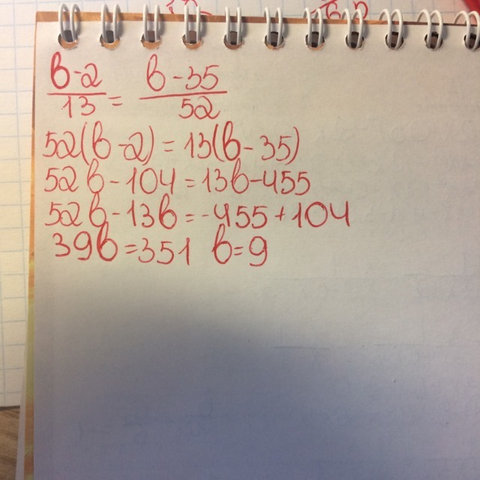 b-2/13 = b-35/52
52(b-2)=13(b-35)
52b-104=13b-455
52b-13b=-455+104
39b=351 b=9